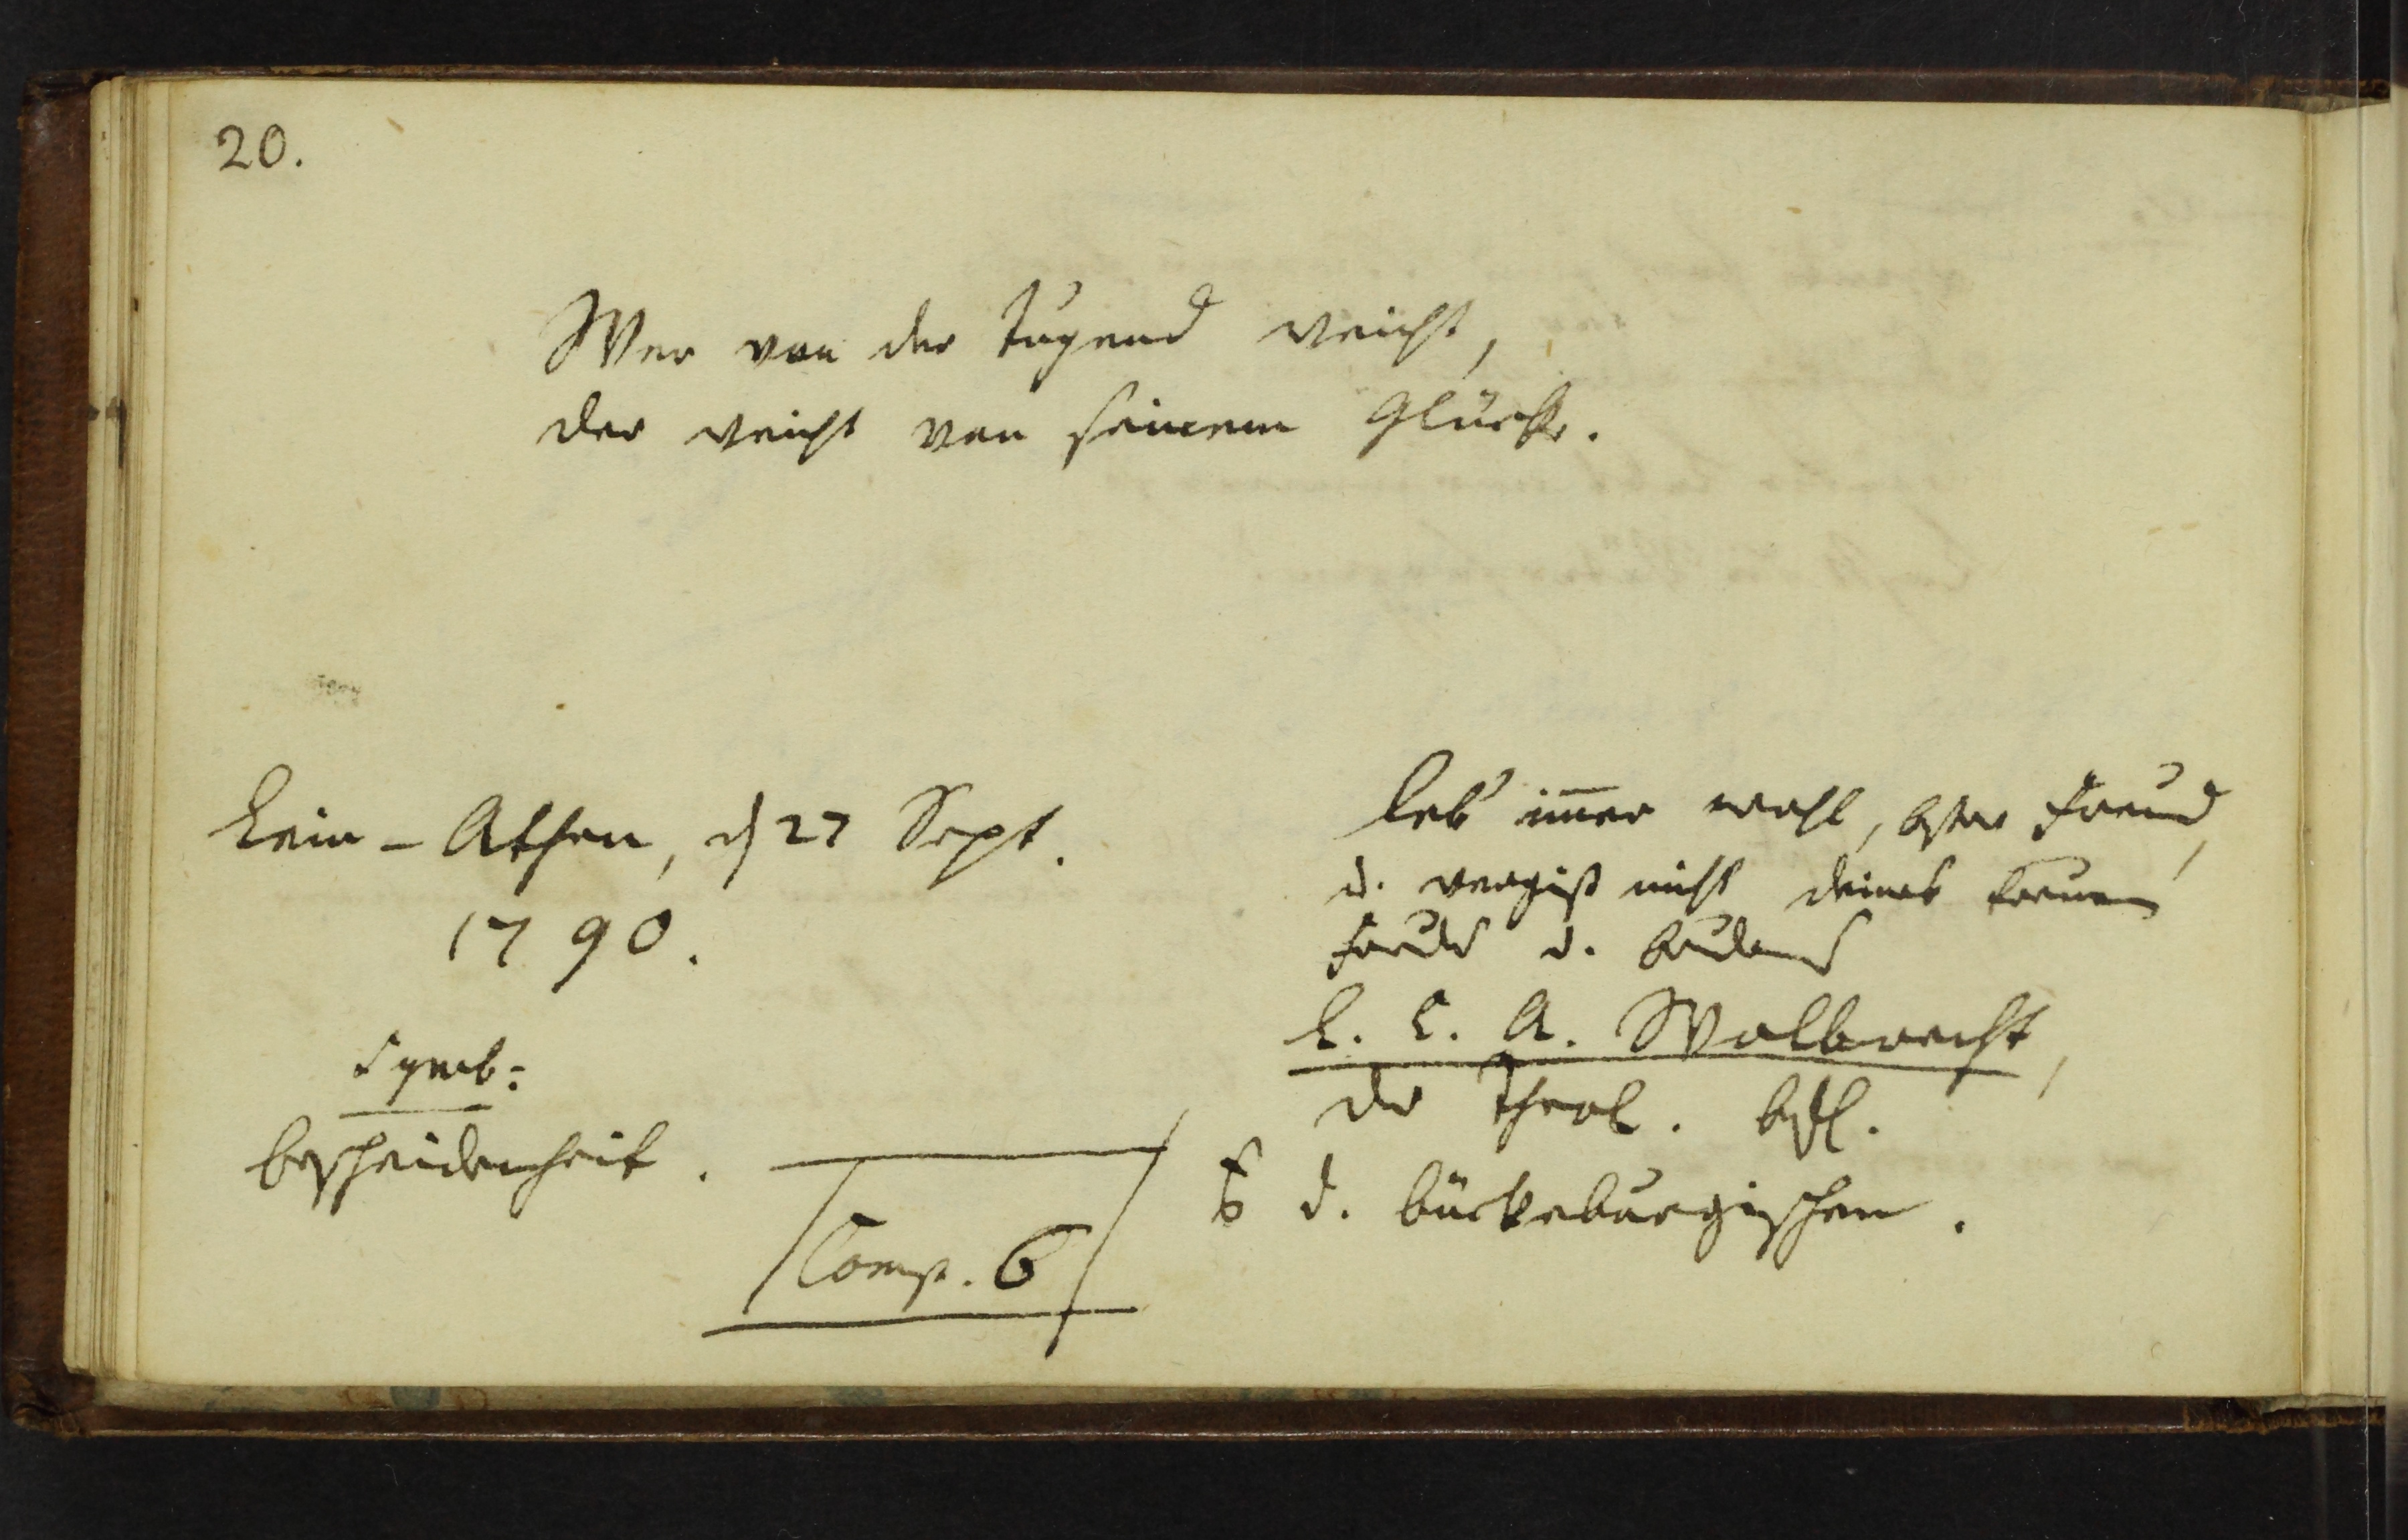 20.
Wer von der Tugend weicht,
der weicht von seinem Glücke.
Lein-Athen, d 27 Sept.
1790.
Symb:
Bescheidenheit.
Comp. 6
Leb' im̅er wohl, bster Freund,
u. vergiß nicht deines treuen
Freuds u. Bruders
L. C. A. Wolbrecht,
der Theol. Bfl.
d. Bückeburgischen.